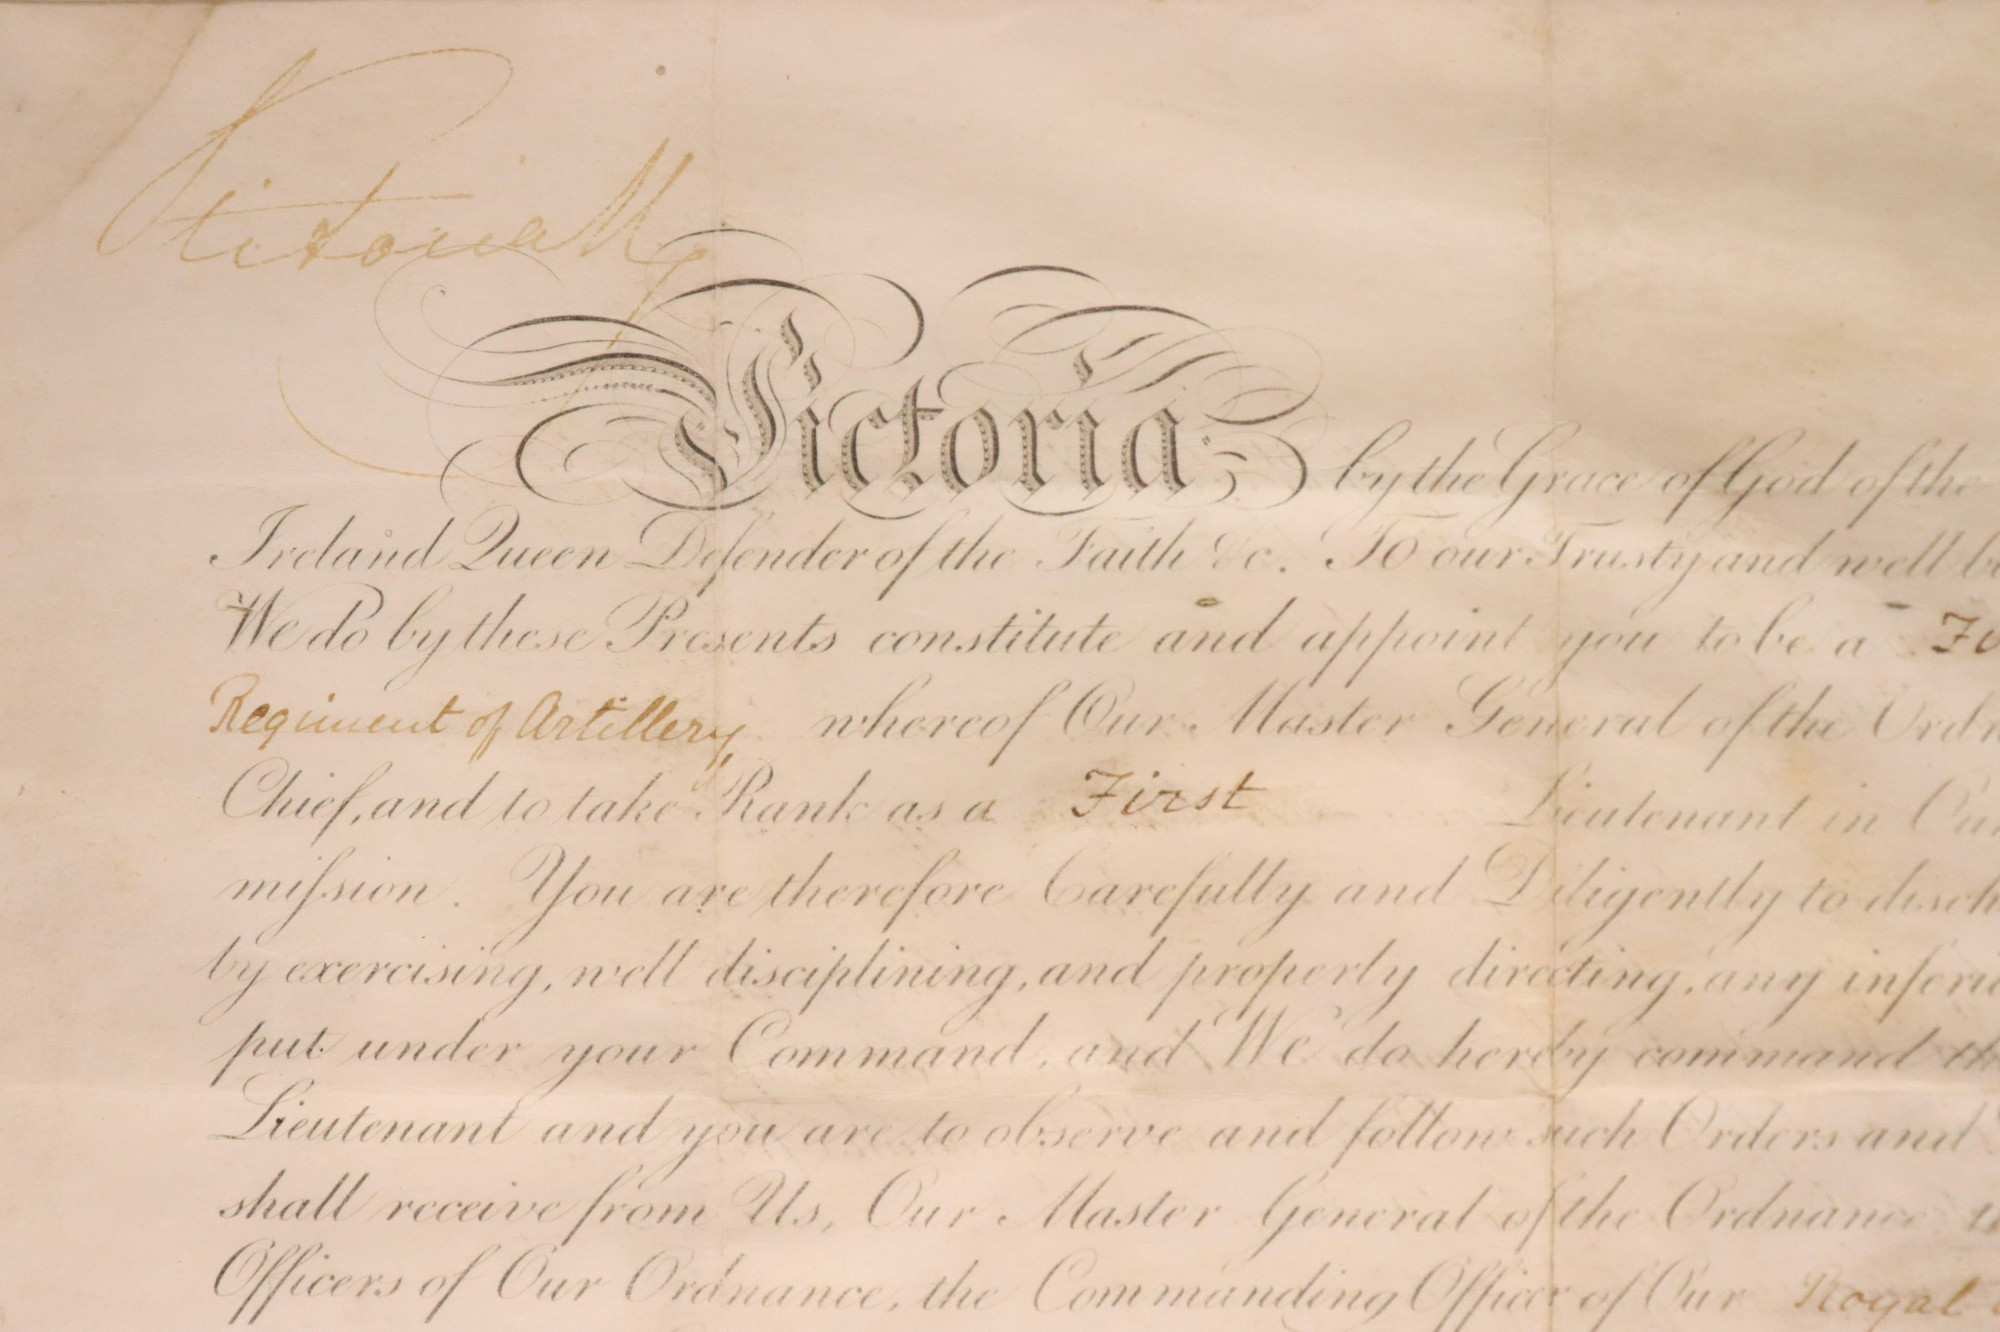 Victoria R
Victoria by the Grace of God of the
Ireland Queen Defender of the Faith &c. To our Trusty and well be
We do by these Presents constitute and appoint you to be a Fi
Regiment of Artillery, whereof Our Master General of the Ordn
Chief, and to take Rank as a First Lieutenant in Our
miſsion. You are therefore Carefully and Diligently to disch
by exercising, well disciplining, and properly directing, any inferi
put under your Command, and We do hereby command th
Lieutenant and you are to observe and follow such Orders and
shall receive from Us, Our Master General of the Ordnance
Officers of Our Ordnance, the Commanding Officer of Our Royal